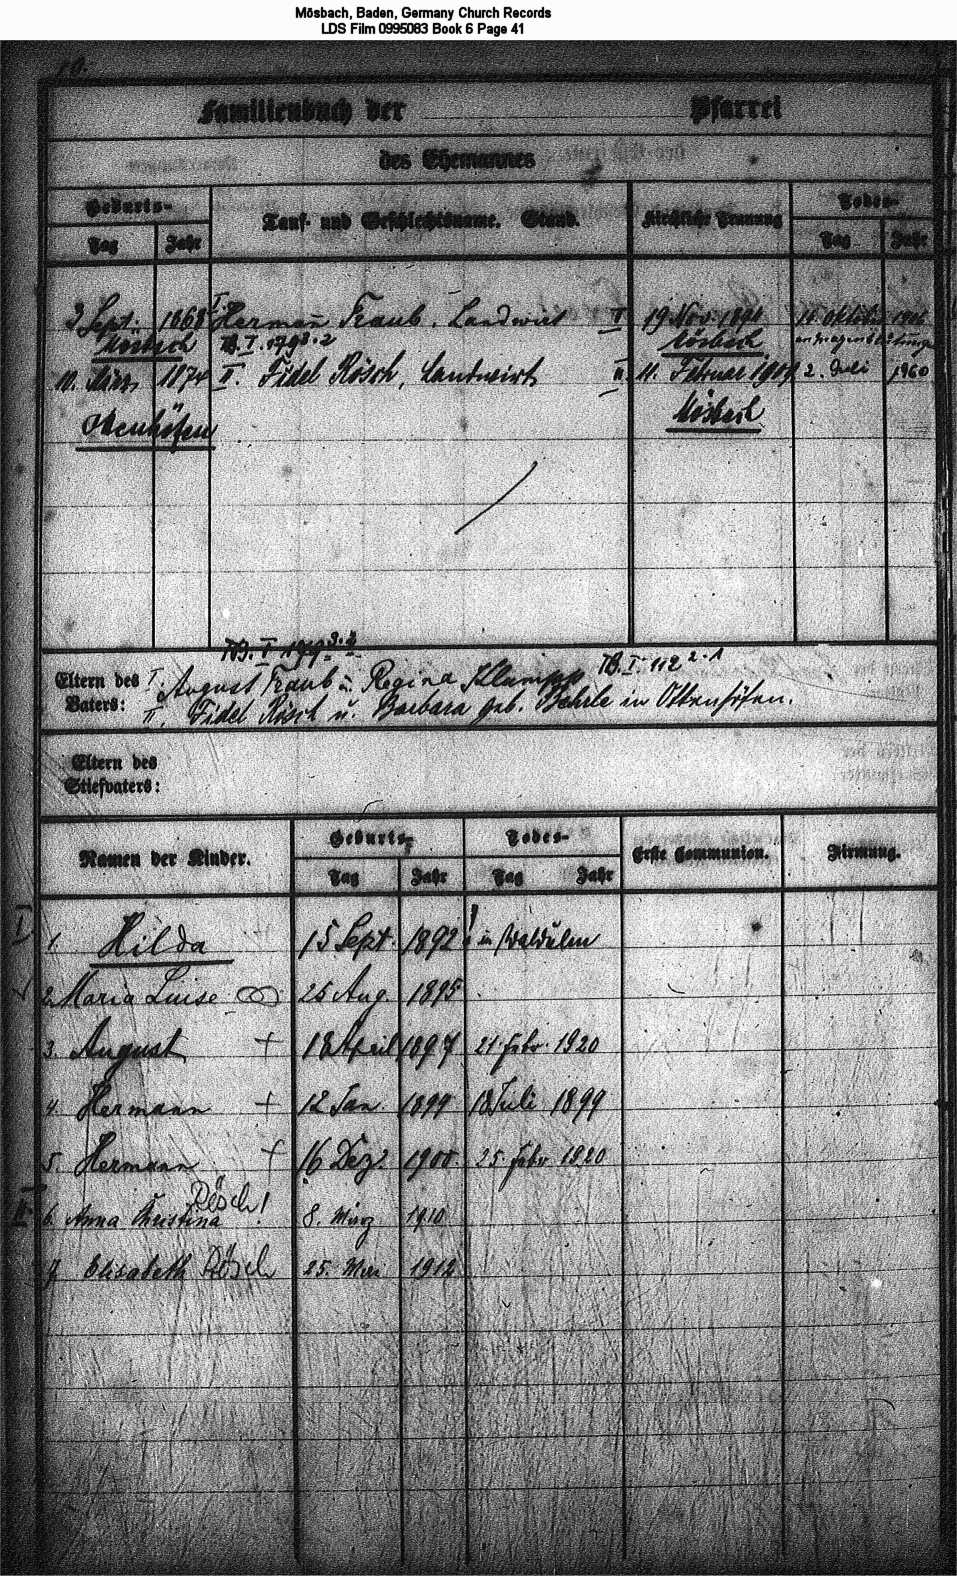 Mösbach, Baden, Germany Church Records
LDS Film 0995083 Book 6 Page 41
Familienbuch der Pfarrei
des Ehemannes
Geburts- Tauf- und Geschlechtsname. Stand. Kirchliche Trauung Todes-
Tag Jahr Tag Jahr
3 Sept. 1868 I. Hermann Traub, Landwirt I 19 Nov. 1891 15 Oktober
Mösbach B. I. Mösbach
10. März 1874 II. Fidel Rösch, Landwirt II. 11. Februar 1909 2. Juli 1960
Ottenhöfen Mösbach
Eltern des Vaters:
I. August Traub u. Regina Klumpp B. I. 112 2.1
II. Fidel Rösch u. Barbara geb. Behrle in Ottenhöfen.
Eltern des
Stiefvaters:
Namen der Kinder. Geburts- Todes- Erste Communion. Firmung.
Tag Jahr Tag Jahr
I 1. Hilda 15 Sept. 1892 ! in Waldulm
2. Maria Luise ∞ 25 Aug. 1895
3. August + 18 April 1897 21. Febr. 1920
4. Hermann + 12 Jan. 1899 18 Juli 1899
5. Hermann + 16 Dez. 1900. 25. Febr. 1920
II 6. Anna Christina Rösch! 8. März 1910
7. Elisabeth Rösch 25. Mai 1912